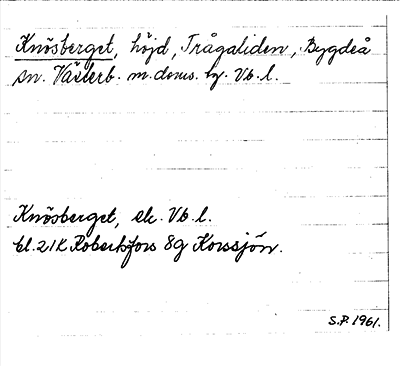 Knösberget, höjd, Trågaliden, Bygdeå
sn. Västerb. m. doms. hg. Vb. l.
Knösberget, ek. Vb. l.
bl. 21K Robertsfors 8g Korssjön.
S.P. 1961.